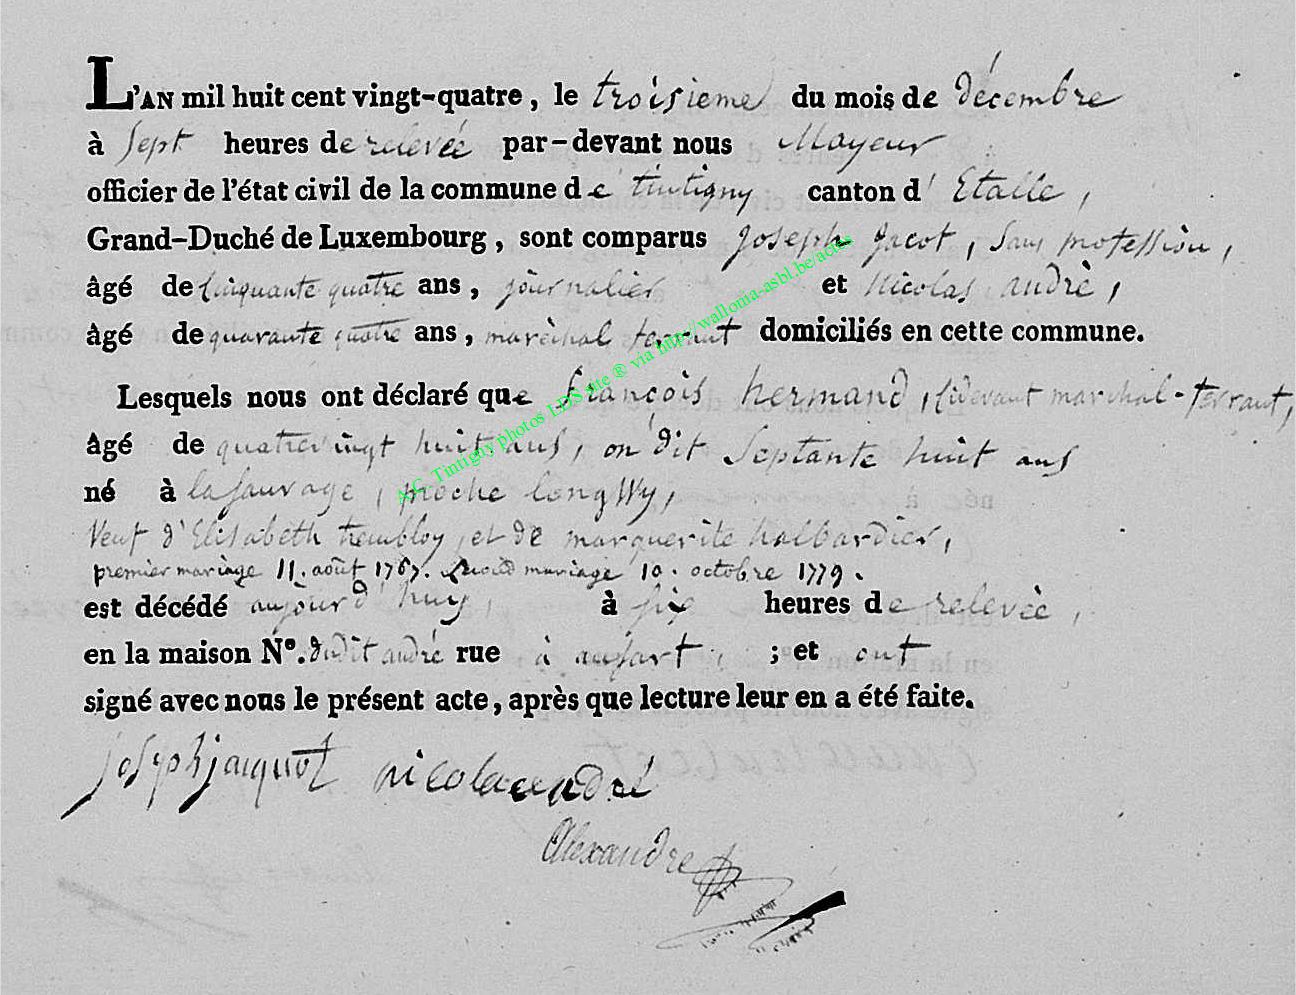 L'AN mil huit cent vingt-quatre, le troisieme du mois de décembre
à sept heures de relevée par-devant nous Mayeur
officier de l'état civil de la commune de tintigny canton d'Etalle,
Grand-Duché de Luxembourg, sont comparus joseph jacot, sans profession,
âgé de cinquante quatre ans, journalier et nicolas andrè,
âgé de quarante quatre ans, maréchal ferrant domiciliés en cette commune.
Lesquels nous ont déclaré que françois hermand, cidevant marchal-ferrant,
âgé de quatrevingt huit ans, on dit septante huit ans
né à lasauvage, proche longwy,
Veuf d'Elisabeth trembloy, et de marguerite halbardier,
premier mariage 11. août 1767. second mariage 10. octobre 1779.
est décédé aujourd'huy, à six heures de relevèe,
en la maison Nº. dudit andré rue à ansart, ; et ont
signé avec nous le présent acte, après que lecture leur en a été faite.
joseph jacquot nicolas andré
Alexandre
A.C. Tintigny photos LDS site ® via http://wallonia-asbl.be/actes